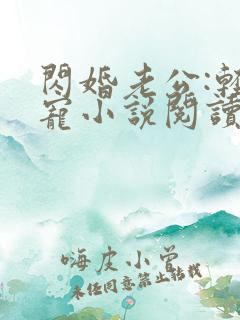 閃婚老公:輕
寵小說閱讀
嗨皮小曾
未经同意禁止转载